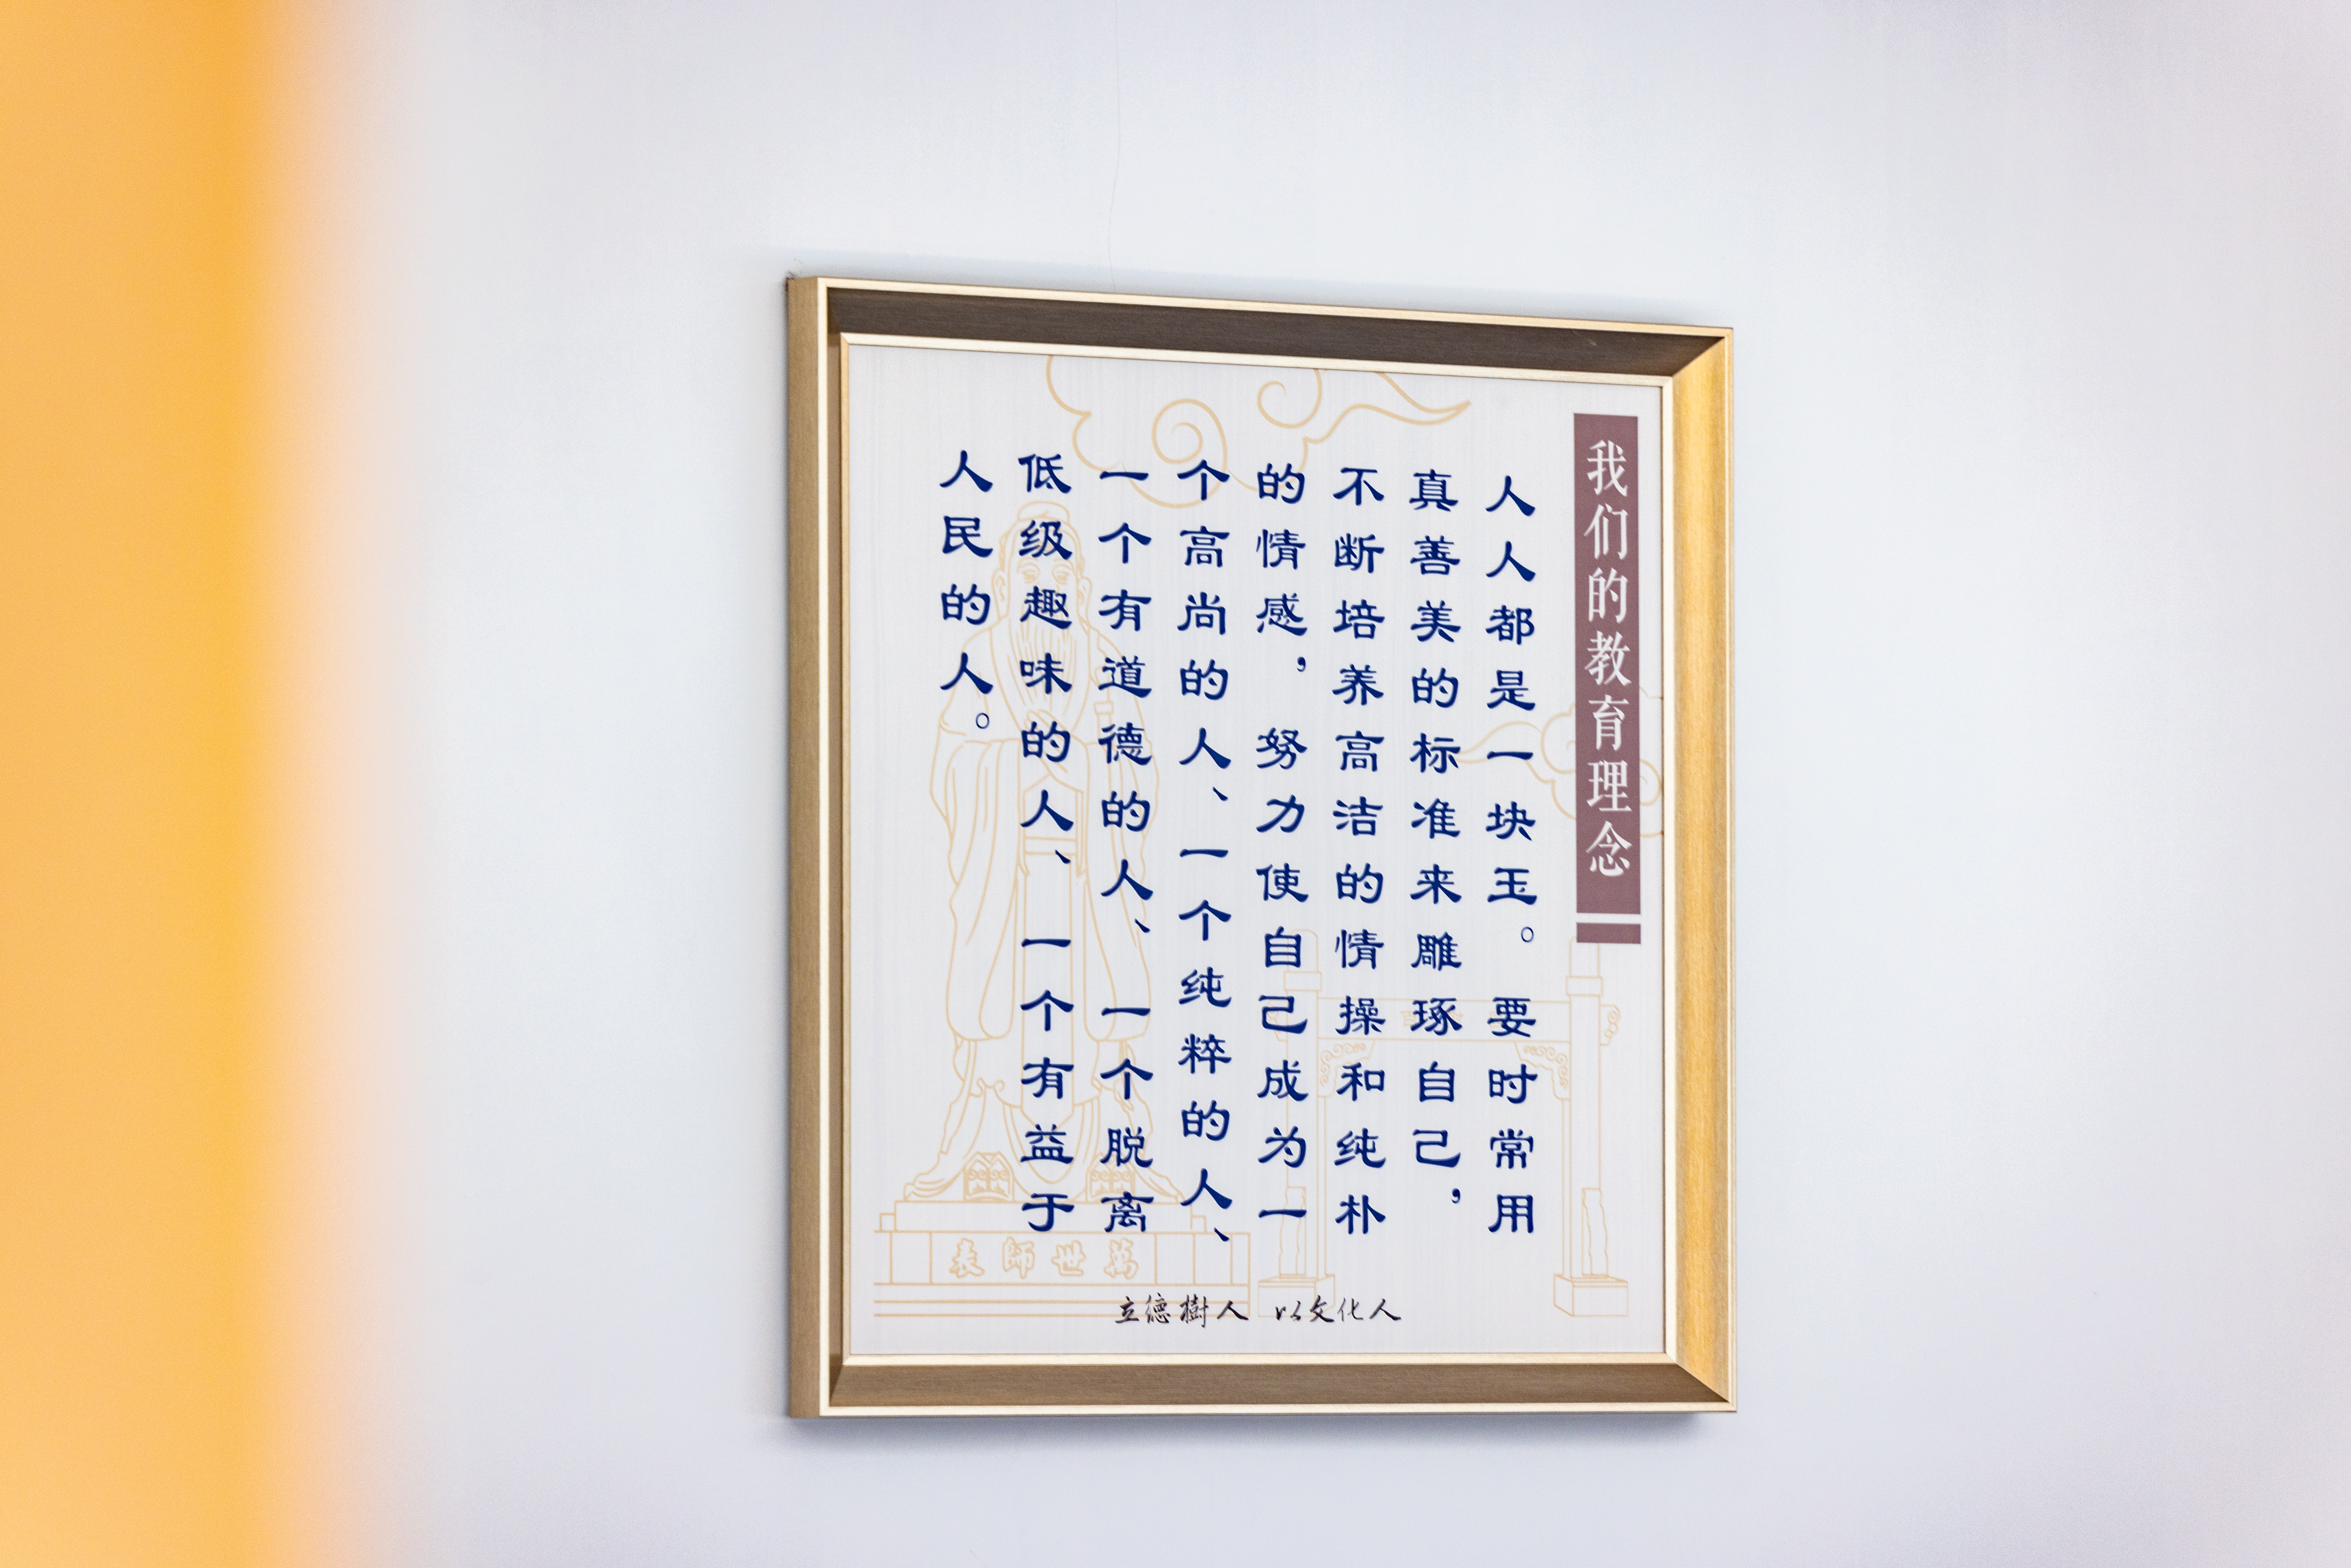 我们的教育理念
人人都是一块玉。要时常用
真善美的标准来雕琢自己，
不断培养高洁的情操和纯朴
的情感，努力使自己成为一
个高尚的人、一个纯粹的人、
一个有道德的人、一个脱离
低级趣味的人、一个有益于
人民的人。
萬世師表
立德樹人 以文化人